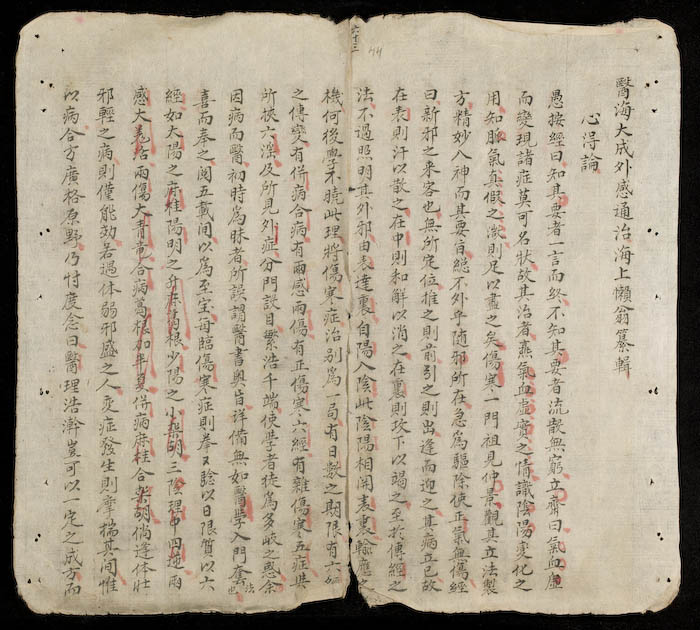 醫海大成外感通治海上懶翁纂輯
心得論
愚按經曰知其要者一言而終不知其要者流散無窮立齋曰氣血虛
而變現諸症莫可名狀故其治者燕氣血虛實之情識陰陽變化之
用知脉氣真假之激則足以盡之矣傷寒一門祖見仲景觀其立法製
方精妙入神而其要旨總不外乎随邪所在急為驅除使正氣無傷經
曰新邪之来客也無所定位推之則前引之則出逢而迎之其病立已故
在表則汗以散之在中則和解以消之在裏則攻下以竭之至於傳經之
法不過照明其外邪由表達裏自陽入陰此陰陽相開表裏輸應之
機何後學不曉此理將傷寒症治别為一局有日數之期限有六經
之傳變有併病合病有兩感兩傷有正傷寒六經有雜傷寒五症與
所挾六淫及所見外症分門設目繁浩千端使學者徒為多岐之惑余
因病而醫初時為昧者所誤謂醫書奥旨詳備無如醫學入門套法也
喜而奉之閱五載間以為至宝每臨傷寒症則拳又診以日限質以六
經如太陽之麻桂陽明之升麻葛根少陽之小柴胡三陰理中四逆兩
感大羗活兩傷大青竜合病葛根如半夏併病麻桂合柴胡倘逢体壮
邪輕之病則僅能効若遇体弱邪盛之人变症發生則摩揣其間惟
以病合方廣格原野乃忖度念曰醫理浩澣豈可以一定之成方而
六十三
44